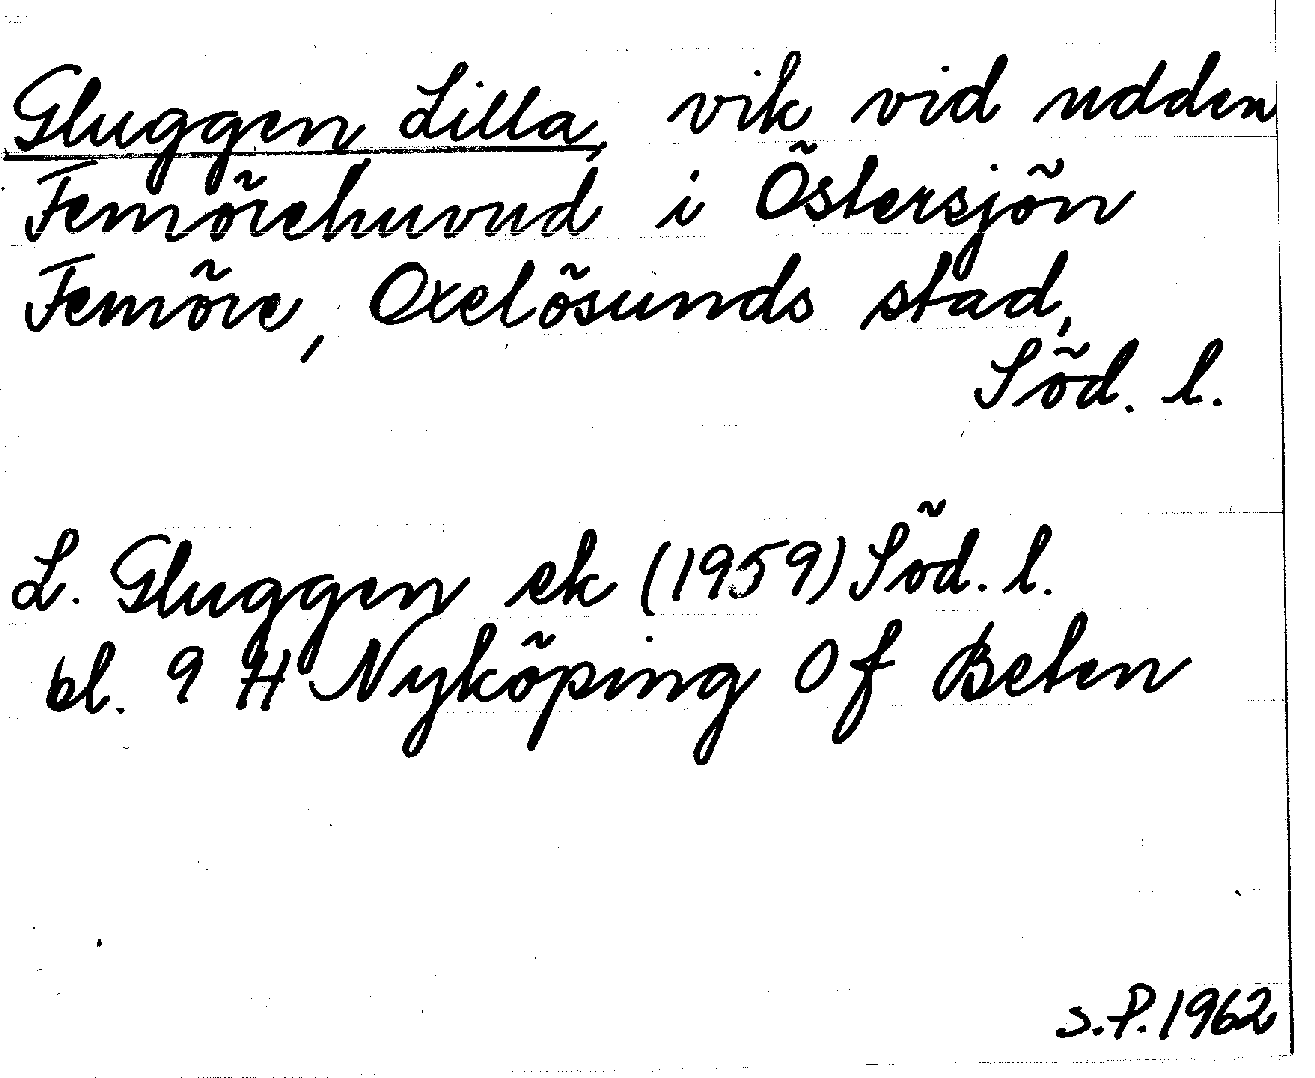 Gluggen, Lilla, vik vid udden
Femörehuvud i Östersjön
Femöre, Oxelösunds stad,
Söd. l.
L. Gluggen ek (1959) Söd. l.
bl. 9 H Nyköping Of Beten
s.P. 1962